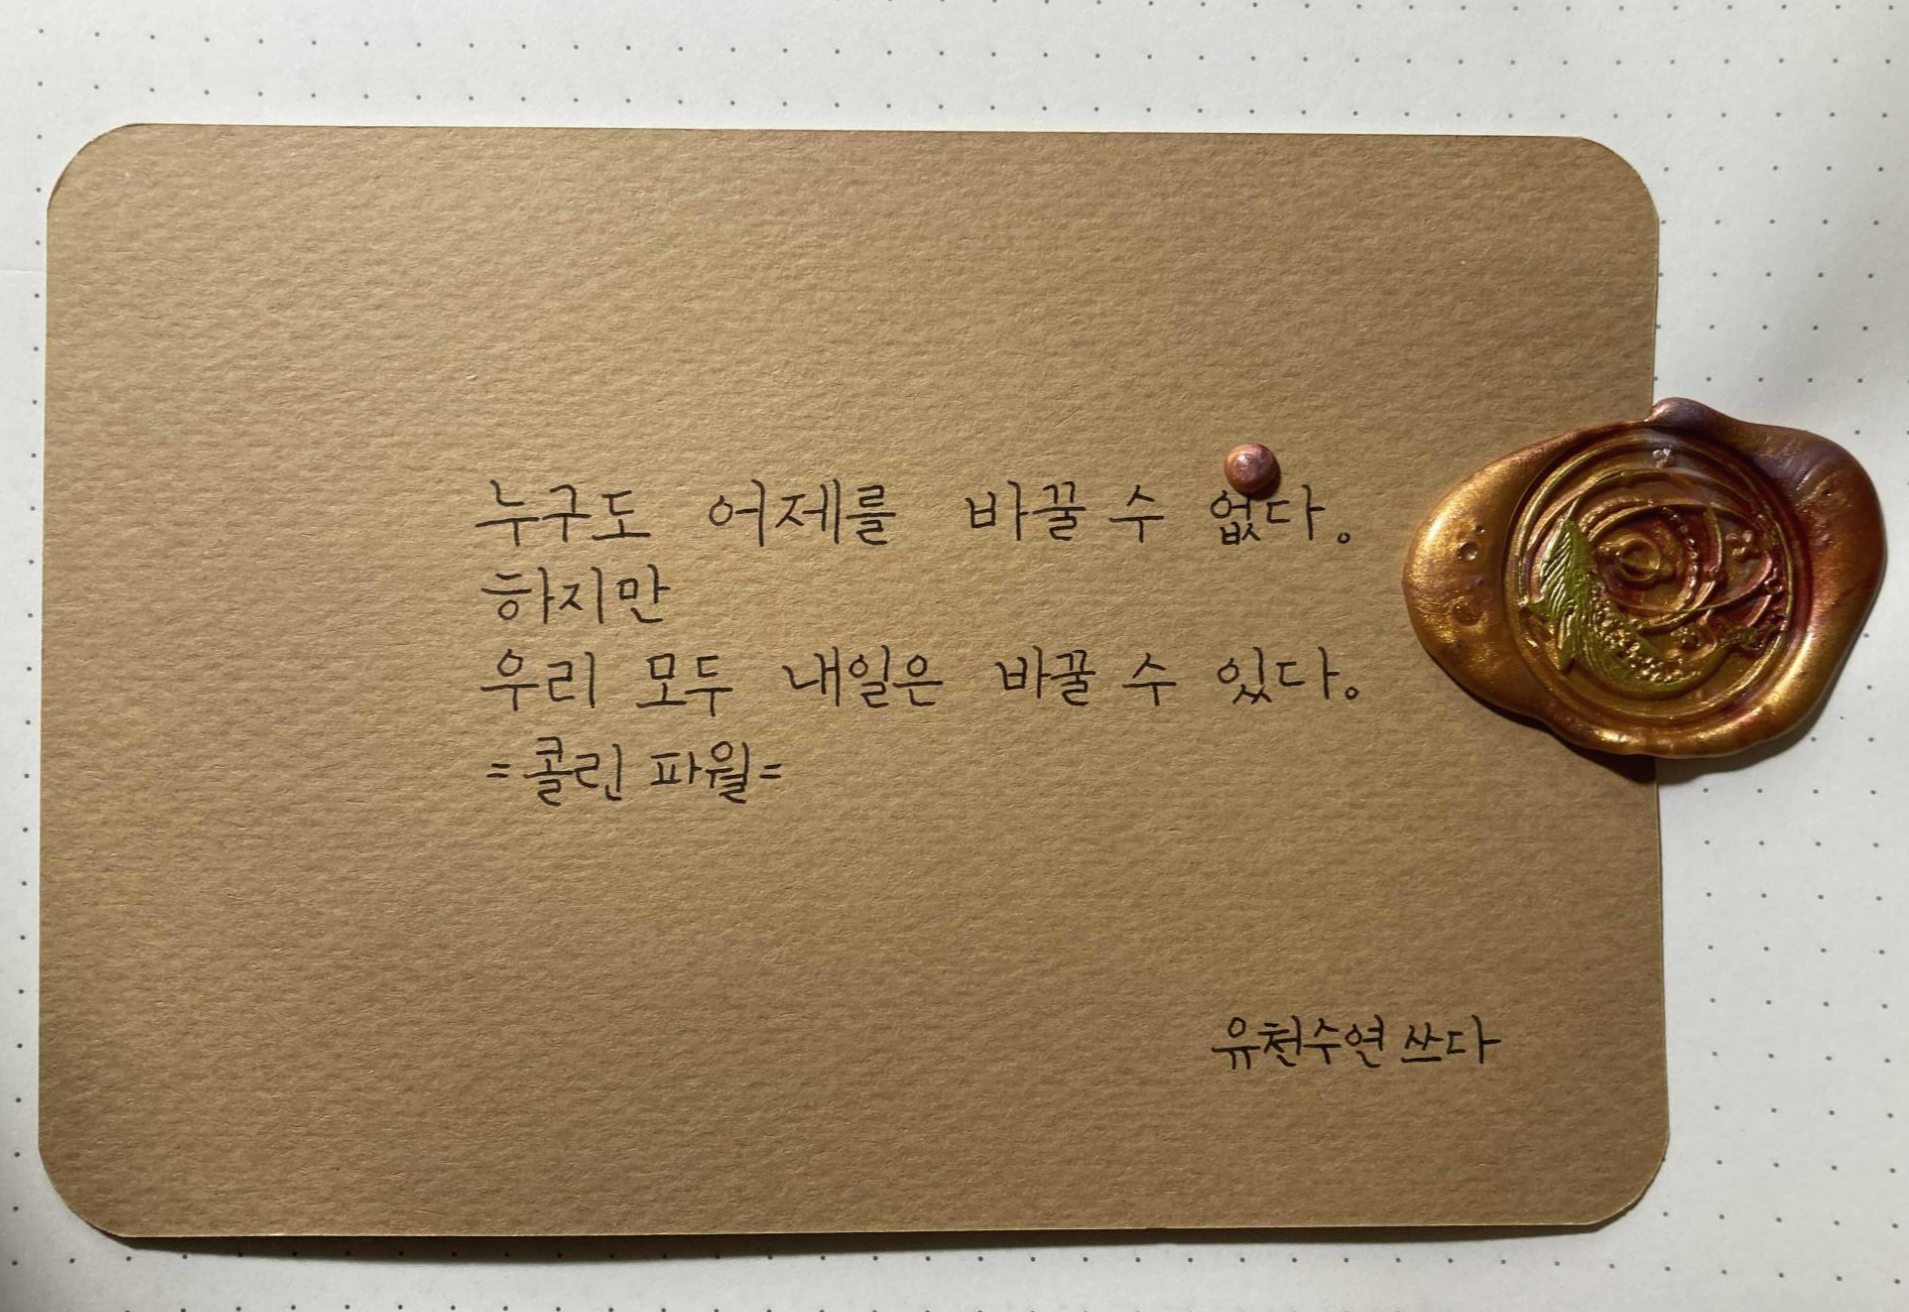 누구도 어제를 바꿀 수 없다.
하지만
우리 모두 내일은 바꿀 수 있다.
=콜린 파월=
유천수연 쓰다